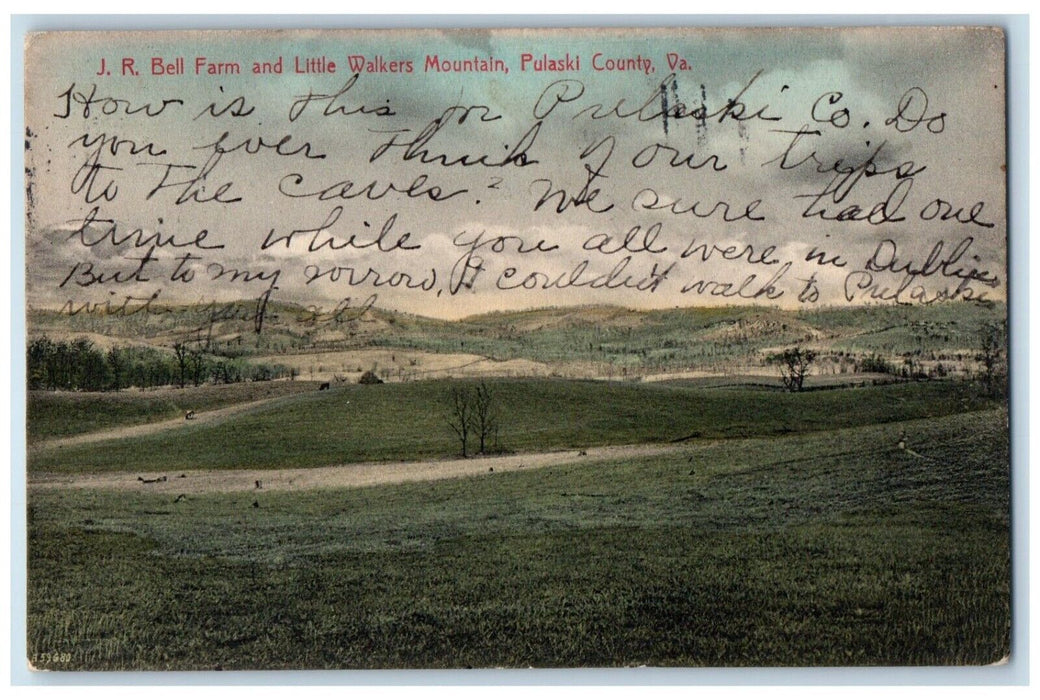 J. R. Bell Farm and Little Walkers Mountain, Pulaski County, Va.
How is this for Pulaski Co. Do
you ever think of our trips
to the caves? We sure had one
time while you all were in Dublin
But to my sorrow, I couldn't walk to Pulaski
with you all
A 59680